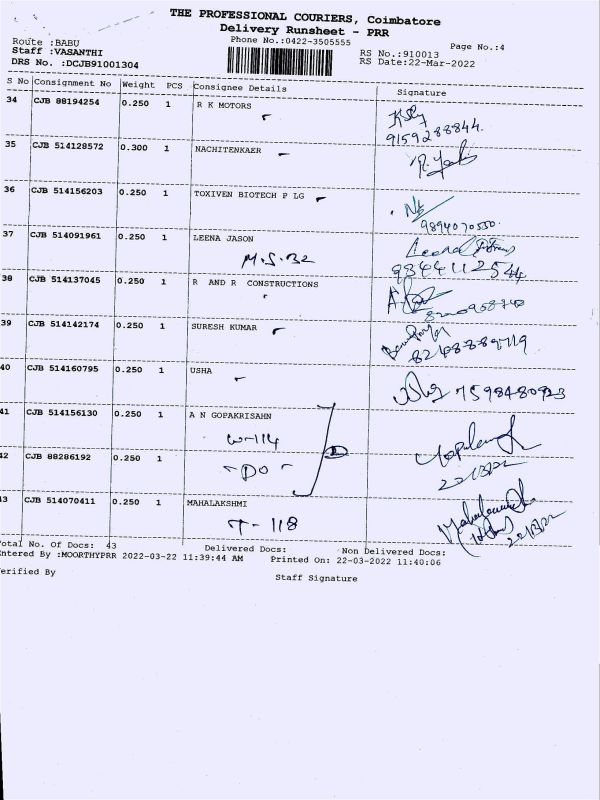 THE PROFESSIONAL COURIERS, Coimbatore
Delivery Runsheet - PRR
Phone No.:0422-3505555
Page No.:4
Route :BABU
Staff :VASANTHI
DRS No. :DCJB91001304
RS No.:910013
RS Date:22-Mar-2022
S No Consignment No Weight PCS Consignee Details Signature
34 CJB 88194254 0.250 1 R K MOTORS
9159288844.
35 CJB 514128572 0.300 1 NACHITENKAER
36 CJB 514156203 0.250 1 TOXIVEN BIOTECH P LG
9894070550.
37 CJB 514091961 0.250 1 LEENA JASON Leena
M.S.B2 9344112544
38 CJB 514137045 0.250 1 R AND R CONSTRUCTIONS
39 CJB 514142174 0.250 1 SURESH KUMAR
40 CJB 514160795 0.250 1 USHA
Usha 7598480923
41 CJB 514156130 0.250 1 A N GOPAKRISAHN
W-114
42 CJB 88286192 0.250 1
- DO -
22/3/22
43 CJB 514070411 0.250 1 MAHALAKSHMI
T-118
22/3/22
Total No. Of Docs: 43 Delivered Docs: Non Delivered Docs:
Entered By :MOORTHYPRR 2022-03-22 11:39:44 AM Printed On: 22-03-2022 11:40:06
Verified By
Staff Signature